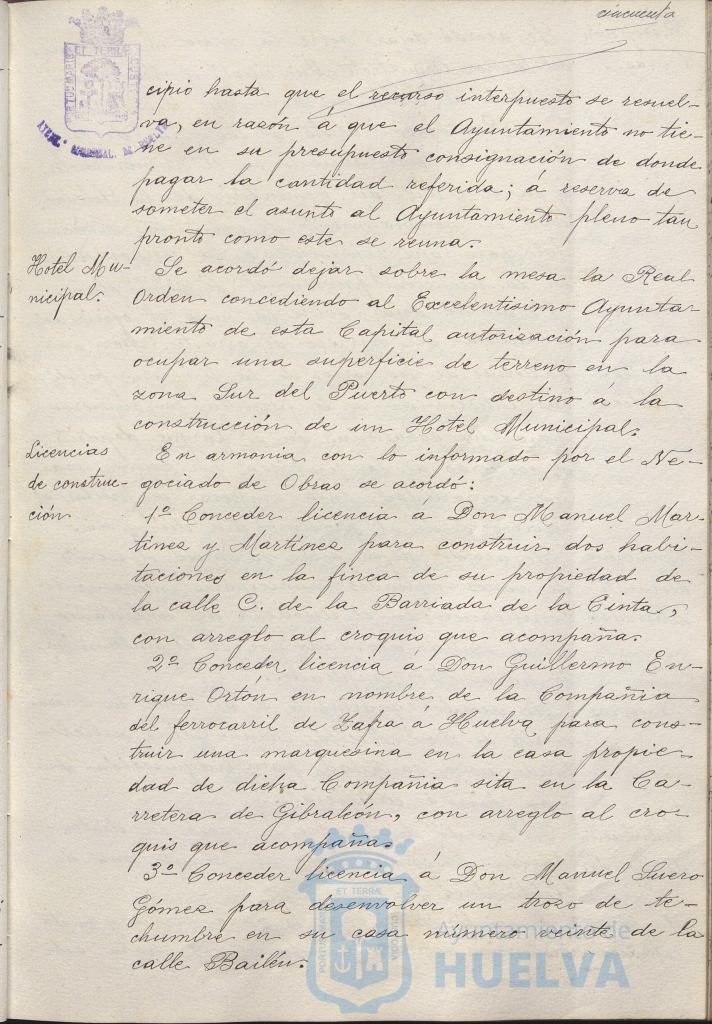 cincuenta
cipio hasta que el recurso interpuesto se resuel-
va, en razón a que el Ayuntamiento no tie-
ne en su presupuesto consignación de donde
pagar la cantidad referida; á reserva de
someter el asunto al Ayuntamiento pleno tan
pronto como este se reuna.
Hotel Mu-
nicipal.
Se acordó dejar sobre la mesa la Real
Orden concediendo al Excelentisimo Ayunta-
miento de esta Capital autorización para
ocupar una superficie de terreno en la
zona Sur del Puerto con destino á la
construcción de un Hotel Municipal.
Licencias
de construc-
ción
En armonia con lo informado por el Ne-
gociado de Obras se acordó:
1º Conceder licencia á Don Manuel Mar-
tinez y Martínez para construir dos habi-
taciones en la finca de su propiedad de
la calle C. de la Barriada de la Cinta,
con arreglo al croquis que acompaña.
2º Conceder licencia á Don Guillermo En-
rique Ortón en nombre de la Compañia
del ferrocarril de Zafra á Huelva para cons-
truir una marquesina en la casa propie-
dad de dicha Compañia sita en la Ca-
rretera de Gibraleón, con arreglo al cro-
quis que acompaña.
3º Conceder licencia á Don Manuel Suero
Gómez para desenvolver un trozo de te-
chumbre en su casa número veinte de la
calle Bailén.
ET TERRÆ
PORTUS MARIS
CUSTODIA
ET TERRÆ
Ayuntamiento de
HUELVA